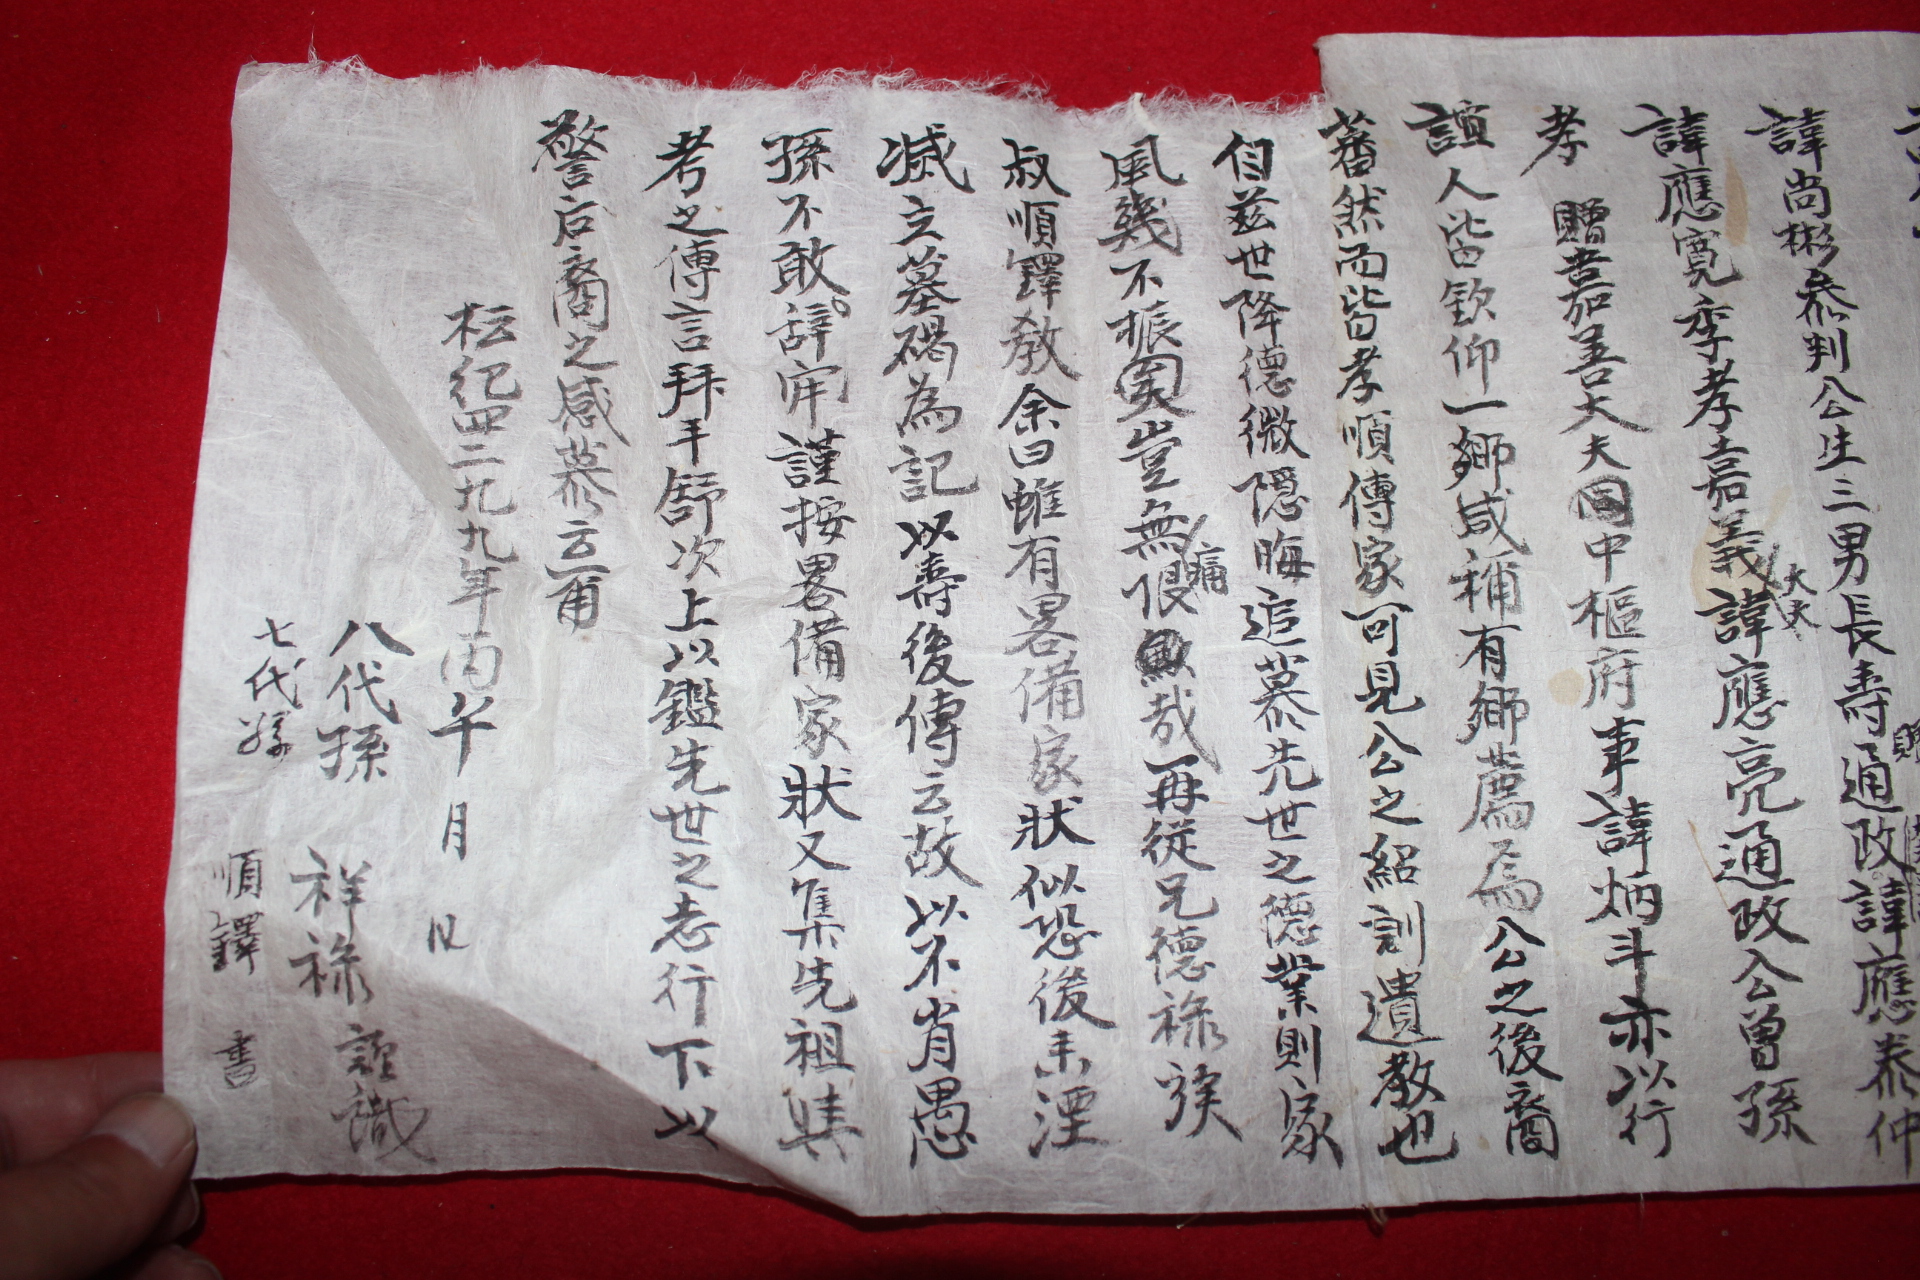 諱尚彬叅判公生三男長壽通政諱應泰仲
諱應寬季孝嘉義大夫諱應亮通政公曾孫
孝 贈嘉善大夫同中樞府事諱炳斗亦以行
誼人皆欽仰一鄉咸稱有鄉薦焉公之後裔
蕃然而皆孝順傳家可見公之紹訓遺教也
自玆世降德微隱晦追慕先世之德業則家
風幾不振豈無痛恨哉再從兄德祿族
叔順鐸教余曰雖有畧備家狀似恐後未湮
滅立墓碣為記以壽後傳云故以不肖愚
孫不敢辞牢謹按畧備家狀又集先祖與
考之傳言拜手舒次上以鑑先世之志行下以
警后裔之感慕云甫
檀紀四二九九年丙午月日
八代孫 祥祿 謹識
七代孫 順鐸 書